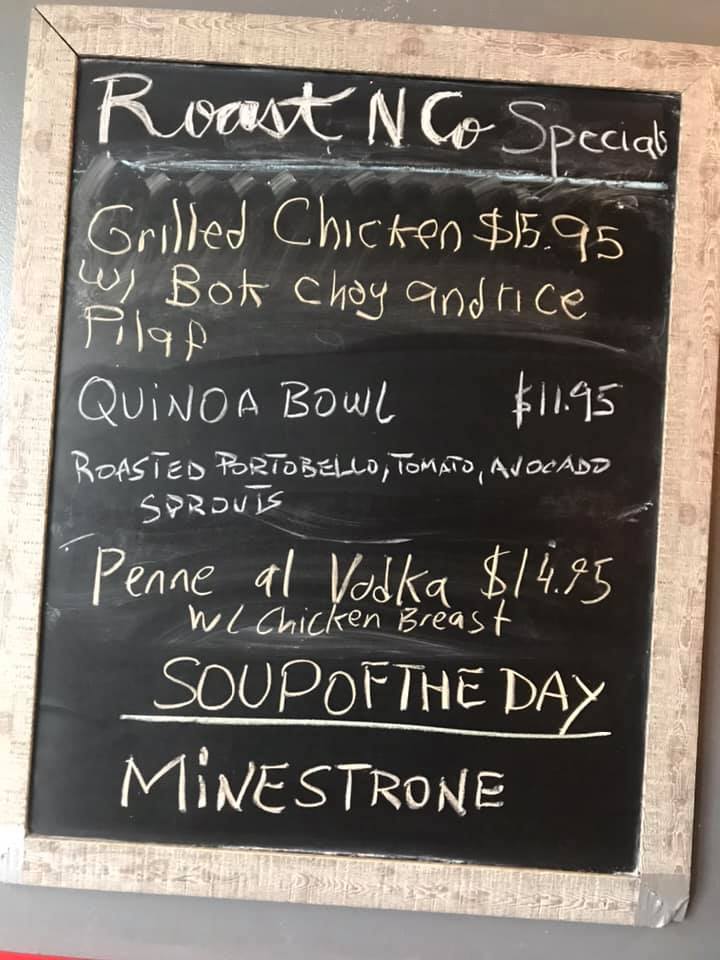 Roast N Co Specials
Grilled Chicken $15.95
w/ Bok Choy and rice
Pilaf
QUINOA BOWL $11.95
ROASTED PORTOBELLO, TOMATO, AVOCADO
SPROUTS
Penne al Vodka $14.95
w/ Chicken Breast
SOUP OF THE DAY
MINESTRONE